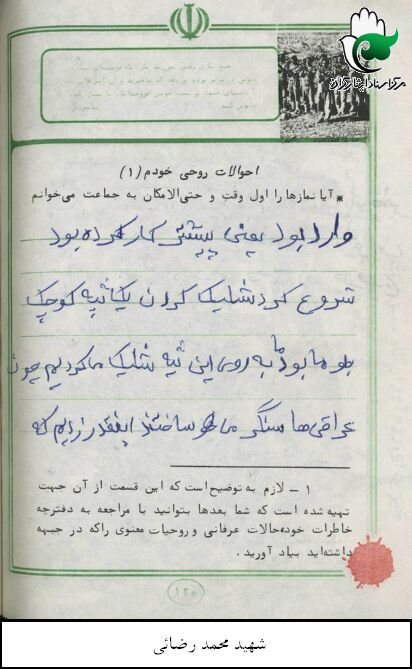 مرکز اسناد ایثارگران
احوالات روحی خودم (۱)
* آیا نمازها را اول وقت و حتی‌الامکان به جماعت می‌خوانم
وارد بود یعنی پیشتی کار کرده بود
شروع کرد شلیک کردن یک تپه کوچک
جلو ما بود ما به روی این تپه شلیک ما کردیم چون
عراقی‌ها سنگر ما هو ساختند اینقدر زدیم که
۱ ــ لازم به توضیح است که این قسمت از آن جهت
تهیه شده است که شما بعدها بتوانید با مراجعه به دفترچه
خاطرات خود، حالات عرفانی و روحیات معنوی را که در جبهه
داشته‌اید بیاد آورید.
۱۲۰
شهید محمد رضائی